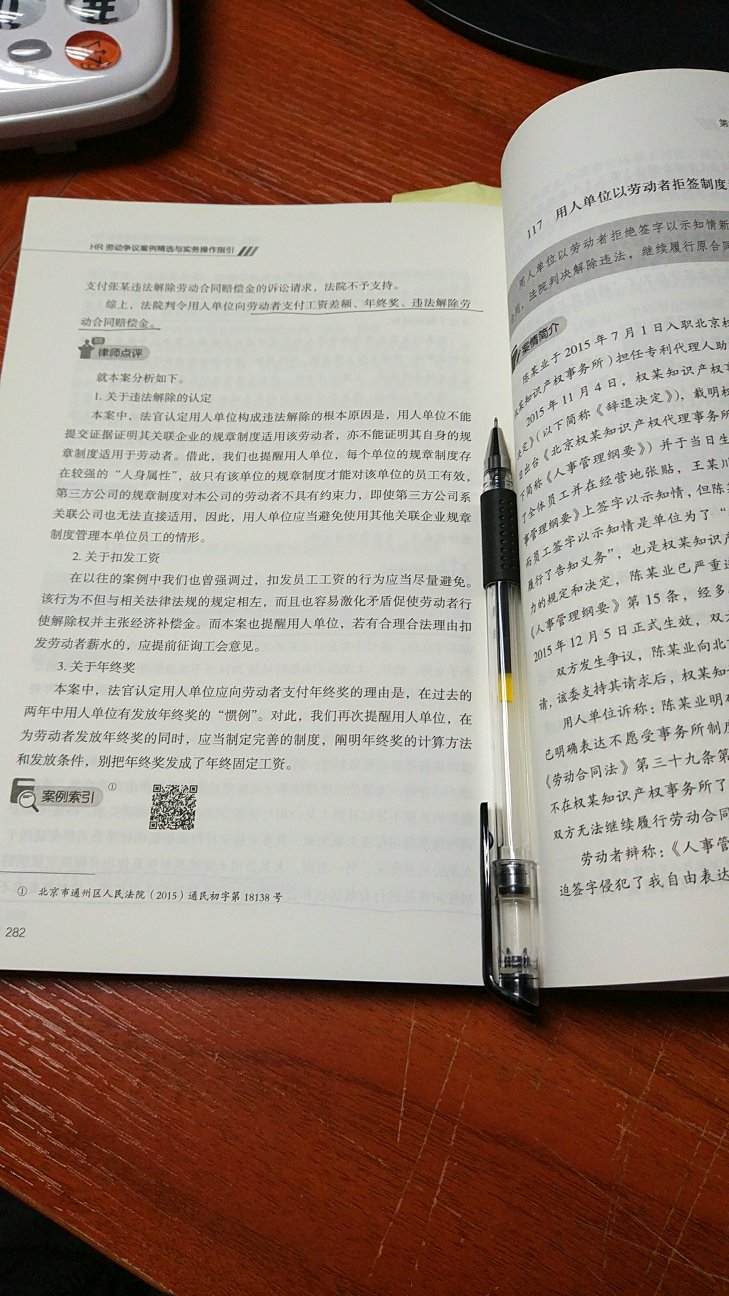 HR 劳动争议案例精选与实务操作指引
支付张某违法解除劳动合同赔偿金的诉讼请求，法院不予支持。
综上，法院判令用人单位向劳动者支付工资差额、年终奖、违法解除劳
动合同赔偿金。
律师点评
就本案分析如下。
1. 关于违法解除的认定
本案中，法官认定用人单位构成违法解除的根本原因是，用人单位不能
提交证据证明其关联企业的规章制度适用该劳动者，亦不能证明其自身的规
章制度适用于劳动者。借此，我们也提醒用人单位，每个单位的规章制度存
在较强的“人身属性”，故只有该单位的规章制度才能对该单位的员工有效，
第三方公司的规章制度对本公司的劳动者不具有约束力，即使第三方公司系
关联公司也无法直接适用，因此，用人单位应当避免使用其他关联企业规章
制度管理本单位员工的情形。
2. 关于扣发工资
在以往的案例中我们也曾强调过，扣发员工工资的行为应当尽量避免。
该行为不但与相关法律法规的规定相左，而且也容易激化矛盾促使劳动者行
使解除权并主张经济补偿金。而本案也提醒用人单位，若有合理合法理由扣
发劳动者薪水的，应提前征询工会意见。
3. 关于年终奖
本案中，法官认定用人单位应向劳动者支付年终奖的理由是，在过去的
两年中用人单位有发放年终奖的“惯例”。对此，我们再次提醒用人单位，在
为劳动者发放年终奖的同时，应当制定完善的制度，阐明年终奖的计算方法
和发放条件，别把年终奖发成了年终固定工资。
案例索引 ①
① 北京市通州区人民法院（2015）通民初字第 18138 号
282
第
117 用人单位以劳动者拒签制度
用人单位以劳动者拒绝签字以示知情新
，法院判决解除违法，继续履行原合同
案情简介
陈某业于 2015 年 7 月 1 日入职北京权
某知识产权事务所）担任专利代理人助
2015 年 11 月 4 日，权某知识产权事
决定》（以下简称《辞退决定》），载明权
日出台《北京权某知识产权代理事务所
简称《人事管理纲要》）并于当日生
了全体员工并在经营地张贴，王某川
事管理纲要》上签字以示知情，但陈
而员工签字以示知情是单位为了“
履行了告知义务”，也是权某知识产
力的规定和决定，陈某业已严重违
《人事管理纲要》第 15 条，经多
2015 年 12 月 5 日正式生效，双方
双方发生争议，陈某业向北
请，该委支持其请求后，权某知
用人单位诉称：陈某业明确
已明确表达不愿受事务所制度
《劳动合同法》第三十九条第
不在权某知识产权事务所了
双方无法继续履行劳动合同
劳动者辩称：《人事管
迫签字侵犯了我自由表达